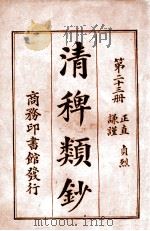 第二十三册
正直 貞烈
謙謹
清稗類鈔
商務印書館發行